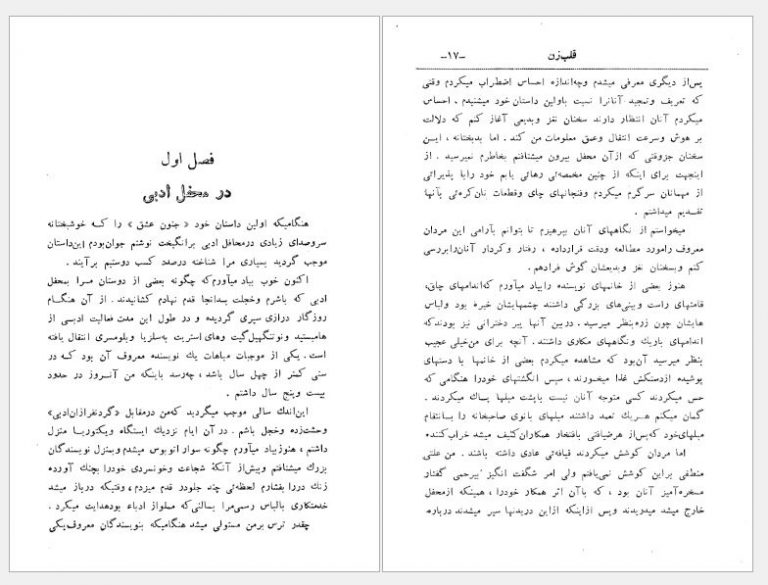 فصل اول
در محفل ادبی
هنگامیکه اولین داستان خود «جنون عشق» را که خوشبختانه
سروصدای زیادی درمحافل ادبی برانگیخت نوشتم جوان‌بودم این‌داستان
موجب گردید بسیاری مرا شناخته درصدد کسب دوستیم برآیند.
اکنون خوب بیاد میآورم‌که چگونه بعضی از دوستان مرا بمحفل
ادبی که باشرم وخجلت بدانجا قدم نهادم کشانیدند. از آن هنگام
روزگار درازی سپری گردیده و در طول این مدت فعالیت ادبی از
هامپستید ونوتنگهیل‌گیت وهای استریت به‌سلزیا وبلومسری انتقال یافته
است. یکی از موجبات مباهات یك نویسنده معروف آن بود که در
سنی کمتر از چهل سال باشد، چه‌رسد باینکه من آنروز در حدود
بیست وپنج سال داشتم.
این‌اندك سالی موجب میگردید که‌من درمقابل «گردنفرازان‌ادبی»
وحشت‌زده وخجل باشم. در آن ایام نزدیك ایستگاه ویکتوریا منزل
داشتم، هنوزبیاد میآورم چگونه سوار اتوبوس میشدم‌وبمنزل نویسندگان
بزرك میشتافتم وپیش‌از آنکهٔ شجاعت وخونسردی خودرا بچنك آورده
زنك دررا بفشارم لحظه‌ئی چند جلودر قدم میزدم، وقتیکه درباز میشد
خدمتکاری بالباس رسمی‌مرا بسالنی‌که مملواز ادباء بودهدایت میکرد.
چقدر ترس برمن مستولی میشد هنگامیکه بنویسندگان معروف‌یکی
قلب‌زن
-۱۷-
پس‌از دیگری معرفی میشدم وچه‌اندازه احساس اضطراب میکردم وقتی
که تعریف وتمجید آنانرا نسبت باولین داستان خود میشنیدم. احساس
میکردم آنان انتظار دارند سخنان نغز وبدیعی آغاز کنم که دلالت
بر هوش وسرعت انتقال وعمق معلومات من کند. اما بدبختانه، این
سخنان جزوقتی که ازآن محفل بیرون میشتافتم بخاطرم نمیرسید. از
اینجهت برای اینکه از چنین مخمصه‌ئی رهائی یابم خود رابا پذیرائی
از مهمانان سرگرم میکردم وفنجانهای چای وقطعات نان‌کره‌ئی بآنها
تقدیم میداشتم.
میخواستم از نگاههای آنان بپرهیزم تا بتوانم بآرامی این مردان
معروف رامورد مطالعه ودقت قرارداده، رفتار وکردار آنان‌رابررسی
کنم وبسخنان نغز وبدیعشان گوش فرادهم.
هنوز بعضی از خانمهای نویسنده رابیاد میآورم که‌اندامهای چاق،
قامتهای راست وبینی‌های بزرگی داشتند چشمهایشان خیره بود ولباس
هایشان چون زره‌بنظر میرسید. دربین آنها پیر دخترانی نیز بودند‌که
اندامهای باریك ونگاههای مکاری داشتند. آنچه برای من‌خیلی عجیب
بنظر میرسید آن‌بود که مشاهده میکردم بعضی از خانمها با دستهای
پوشیده ازدستکش غذا میخورند، سپس انگشتهای خودرا هنگامی که
حس میکردند کسی متوجه آنان نیست باپشت مبلها پساك میکردند.
گمان میکنم هریك تعمد داشتند مبلهای بانوی صاحبخانه را بانتقام
مبلهای‌خود که‌پس‌از هرضیافتی بافتخار همکاران‌کثیف میشد خراب‌کنند.
اما مردان کوشش میکردند قیافه‌ئی عادی داشته باشند. من علتی
منطقی براین کوشش نمی‌یافتم ولی امر شگفت انگیز بیرحمی گفتار
مسخره‌آمیز آنان بود، که باآن اثر همکار خودرا، همینکه ازمحفل
خارج میشد میدریدند وپس ازاینکه ازاین دریدنها سیر میشدند درباره